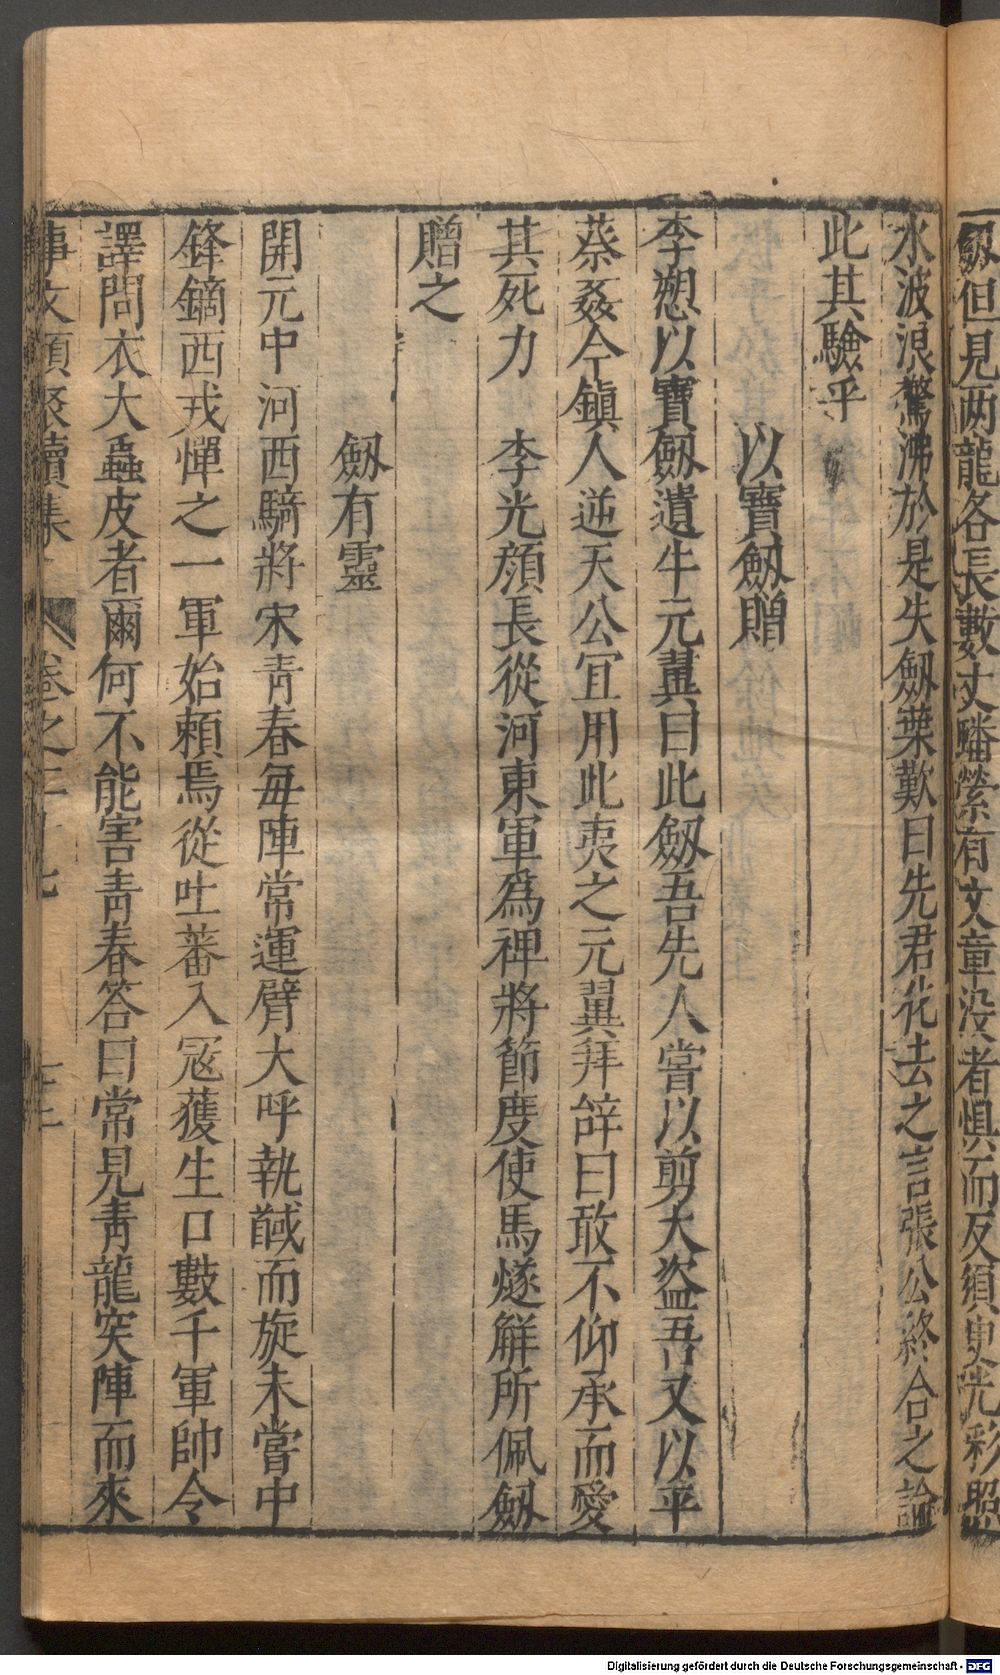 劔但見兩龍各長數丈蟠縈有文章没者懼而反須臾光彩照
水波浪驚沸於是失劔葉歎曰先君化去之言張公終合之論
此其驗乎
以寶劔贈
李愬以寶劔遺牛元翼曰此劔吾先人嘗以剪大盜吾又以平
蔡姦今鎮人逆天公宜用此夷之元翼拜辝曰敢不仰承而愛
其死力　李光顔長從河東軍爲禆將節度使馬燧解所佩劔
贈之
劔有靈
開元中河西騎將宋青春每陣常運臂大呼執馘而旋未嘗中
鋒鏑西戎憚之一軍始賴焉從吐蕃入冦獲生口數千軍帥令
譯問衣大蟲皮者爾何不能害青春答曰常見青龍突陣而來
事文類聚續集 卷之二十七
Digitalisierung gefördert durch die Deutsche Forschungsgemeinschaft - DFG